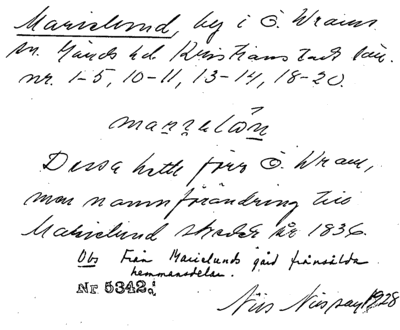 Marielund, by i Ö. Wrams
sn. Gärds hd Kristianstads län.
nr. 1-5, 10-11, 13-14, 18-20.
Dessa hette förr Ö. Wram,
men namnförändring till
Marielund skedde år 1836.
Obs Från Marielunds gård frånsålda
hemmansdelar.
Nr 5342.
Nils Nilsson 1928